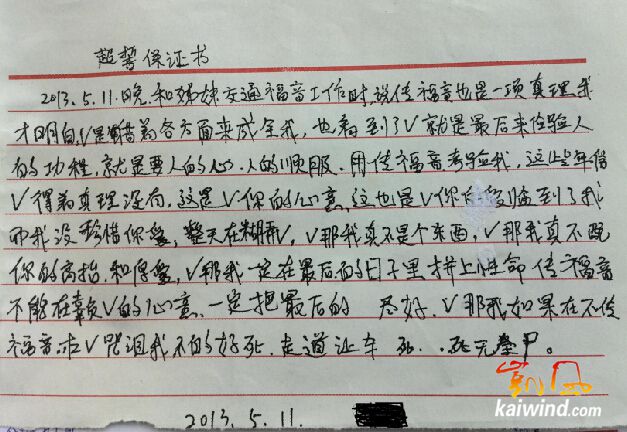 起誓保证书
2013.5.11.晚.和姊妹交通福音工作时,说传福音也是一项真理,我
才明白,V是借着各方面来成全我,也看到了V就是最后来经验人
的功程,就是要人的心.人的顺服.用传福音考验我,这些年信
V得着真理没有,这是V你的心意,这也是V你 临到了我
而我没珍惜你爱,整天在糊弄V,V那我真不是个东西,V那我真不配
你的高抬.和厚爱,V那我一定在最后的日子里拼上性命传福音
不能在辜负V的心意.一定把最后的 尽好.V那我如果在不传
福音.求V咒诅我不的好死.走道让车 死..死无整尸。
2013.5.11.
凯风
kaiwind.com